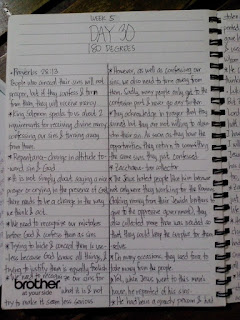 WEEK 5
DAY 30
180 DEGREES
* Proverbs 28:13
People who conceal their sins will not
prosper, but if they confess & turn
from them, they will receive mercy.
* King Solomon speaks to us about 2
requirements for receiving divine mercy:
confessing our sins & turning away
from them.
* Repentance - change in attitude to-
ward sin & God
* It is not simply about saying a nice
prayer or crying in the presence of God
there needs to be a change in the way
we think & act.
* We need to recognize our mistakes
before God & confess them as sins
* Trying to hide & conceal them is use-
less because God knows all things, &
trying to justify them is equally
* We need to recognize our sins for
what it is & not
try to make it seem less serious
brother
at your side
* However, as well as confessing our
sins, we also need to turn away from
them. Sadly, many people only get to the
confession part & never go any further
* They acknowledge in prayer that they
sinned but they are not willing to aban-
don their sin. As soon as they have the
opportunities, they return to committing
the same sins they just confessed.
* Zacchaeus - tax collector
* The Jews hated people like him because
not only were they working for the Romans
(taking money from their Jewish brothers to
give to the oppressive government), they
also collected more than was needed so
that they could keep the surplus for them
selves.
* On many occasions, they used force to
take money from the people.
* Yet, when Jesus went to this man's
house, he repented of his sins.
* He had been a greedy person & had